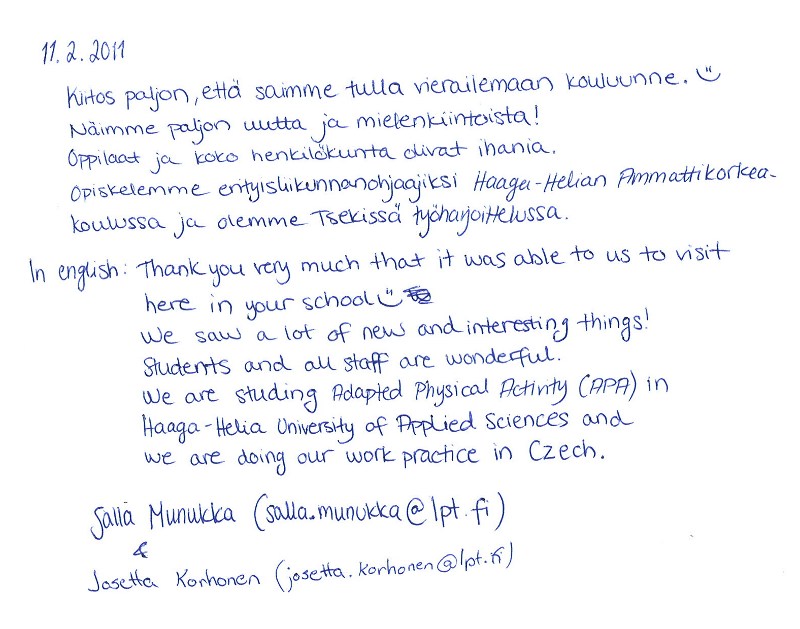 11.2.2011
Kiitos paljon, että saimme tulla vierailemaan kouluunne. :)
Näimme paljon uutta ja mielenkiintoista!
Oppilaat ja koko henkilökunta olivat ihania.
Opiskelemme erityisliikunnanohjaajiksi Haaga-Helian Ammattikorkea-
koulussa ja olemme Tsekissä työharjoittelussa.
In english: Thank you very much that it was able to us to visit
here in your school :)
We saw a lot of new and interesting things!
Students and all staff are wonderful.
We are studing Adapted Physical Activity (APA) in
Haaga-Helia University of Applied Sciences and
we are doing our work practice in Czech.
Salla Munukka (salla.munukka@lpt.fi)
&
Josetta Korhonen (josetta.korhonen@lpt.fi)